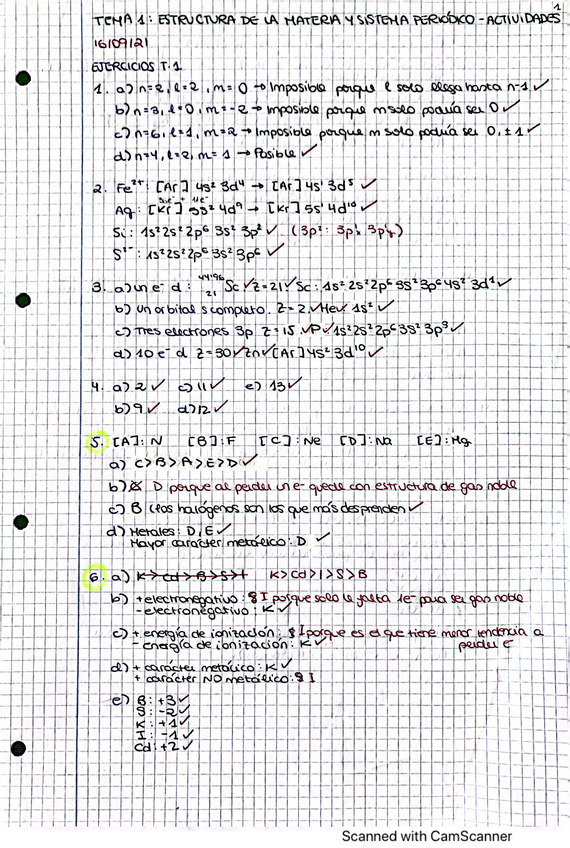 1
TEMA 1: ESTRUCTURA DE LA MATERIA Y SISTEMA PERIÓDICO - ACTIVIDADES
16/09/21
EJERCICIOS T.1
1. a) n=2, l=2, m=0 → Imposible porque l solo llega hasta n-1 ✓
b) n=3, l=0, m=-2 → Imposible porque m solo podría ser 0 ✓
c) n=6, l=1, m=2 → Imposible porque m solo podría ser 0, ±1 ✓
d) n=4, l=2, m=1 → Posible ✓
2. Fe²⁺: [Ar] 4s² 3d⁴ → [Ar] 4s¹ 3d⁵ ✓
Ag: [Kr] 5s² 4d⁹ → [Kr] 5s¹ 4d¹⁰ ✓
Si: 1s² 2s² 2p⁶ 3s² 3p² ✓ (3p²: 3p¹ₓ 3p¹ᵧ)
S²⁻: 1s² 2s² 2p⁶ 3s² 3p⁶ ✓
3. a) un e⁻ d: 44'96 21 Sc ✓ Z=21 ✓ Sc: 1s² 2s² 2p⁶ 3s² 3p⁶ 4s² 3d¹ ✓
b) Un orbital s completo. Z=2 ✓ He ✓ 1s² ✓
c) Tres electrones 3p Z=15 ✓ P ✓ 1s² 2s² 2p⁶ 3s² 3p³ ✓
d) 10 e⁻ d Z=30 ✓ Zn ✓ [Ar] 4s² 3d¹⁰ ✓
4. a) 2 ✓ c) 11 ✓ e) 13 ✓
b) 9 ✓ d) 12 ✓
5. [A]: N [B]: F [C]: Ne [D]: Na [E]: Mg
a) C>B>A>E>D ✓
b) D porque al perder un e⁻ quede con estructura de gas noble
c) B (los halógenos son los que más desprenden ✓
d) Metales: D, E ✓
Mayor carácter metálico: D ✓
6. a) K>Cd>B>S>I K>Cd>I>S>B
b) + electronegativo: S I porque solo le falta 1e⁻ para ser gas noble
- electronegativo: K ✓
c) + energía de ionización: S I porque es el que tiene menor tendencia a
- energía de ionización: K ✓ perder e⁻
d) + carácter metálico: K ✓
+ carácter NO metálico: S I
e) B: +3 ✓
S: -2 ✓
K: +1 ✓
I: -1 ✓
Cd: +2 ✓
Scanned with CamScanner